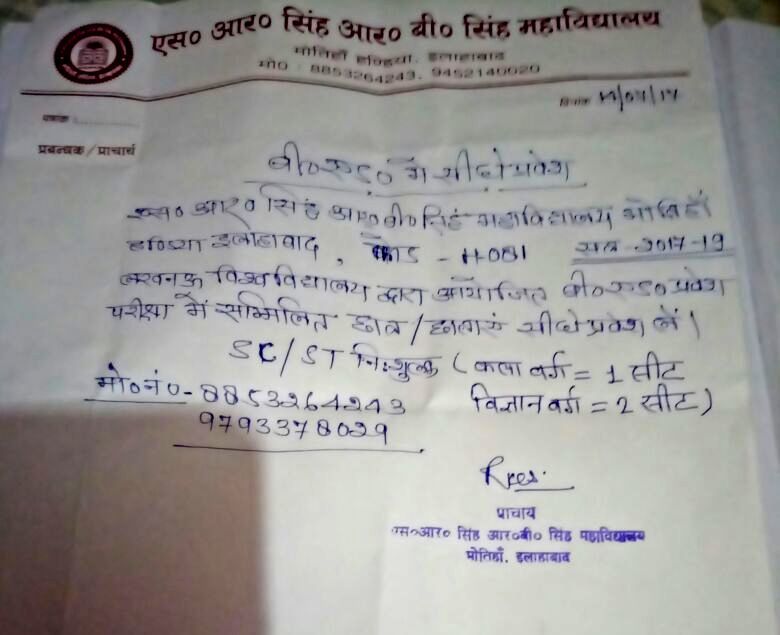 एस० आर० सिंह आर० बी० सिंह महाविद्यालय
मोतिहाँ हण्डिया, इलाहाबाद
मो० : 8853264243, 9452140020
पत्रांक :
दिनांक 14/07/17
प्रबन्धक/प्राचार्य
बी०एड० में सीधे प्रवेश
एस० आर० सिंह आर०बी०सिंह महाविद्यालय मोतिहाँ
हण्डिया इलाहाबाद, कोड - H081 सत्र-2017-19
लखनऊ विश्वविद्यालय द्वारा आयोजित बी०एड० प्रवेश
परीक्षा में सम्मिलित छात्र/छात्राएं सीधे प्रवेश लें।
SC/ST निःशुल्क (कला वर्ग = 1 सीट
विज्ञान वर्ग = 2 सीट)
मो०नं०-8853264243
9793378029
प्राचार्य
एस०आर० सिंह आर०बी० सिंह महाविद्यालय
मोतिहाँ, इलाहाबाद